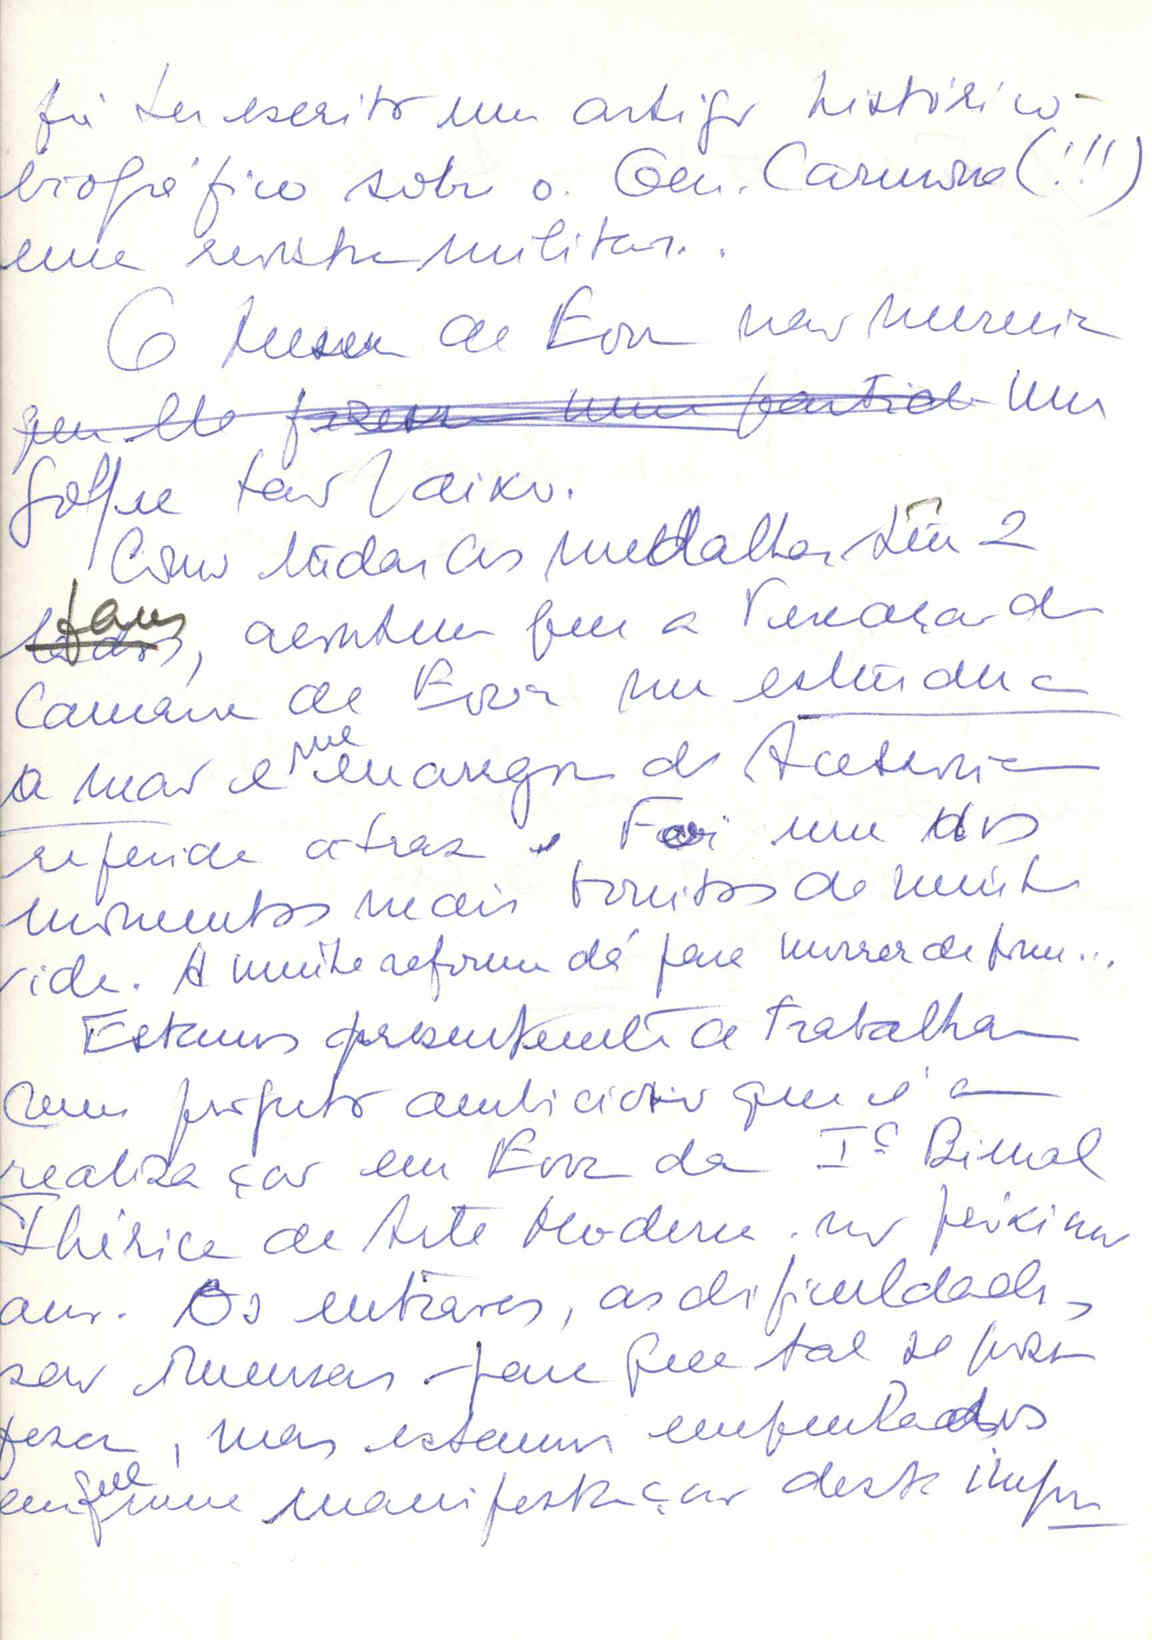 foi ter escrito um artigo histórico-
biográfico sobre o Gen. Carmona (!!!)
numa revista militar..
O Museu de Évora não merecia
que lhe fizessem uma partida um
golpe tão baixo.
Como todas as medalhas têm 2
lados, faces, acontece que a Vereação da
Camara de Évora me estendeu
a mão e me encarregou da Acessoria
referida atraz. Foi um dos
momentos mais bonitos da minha
vida. A minha reforma dá para morrer de fome...
Estamos presentemente a trabalhar
num projecto ambicioso que é a
realização em Évora da Iª Bienal
Ibérica de Arte Moderna no próximo
ano. Os entraves, as dificuldades,
são imensas para que tal se possa
fazer, mas estamos empenhados
em que uma manifestação deste impor